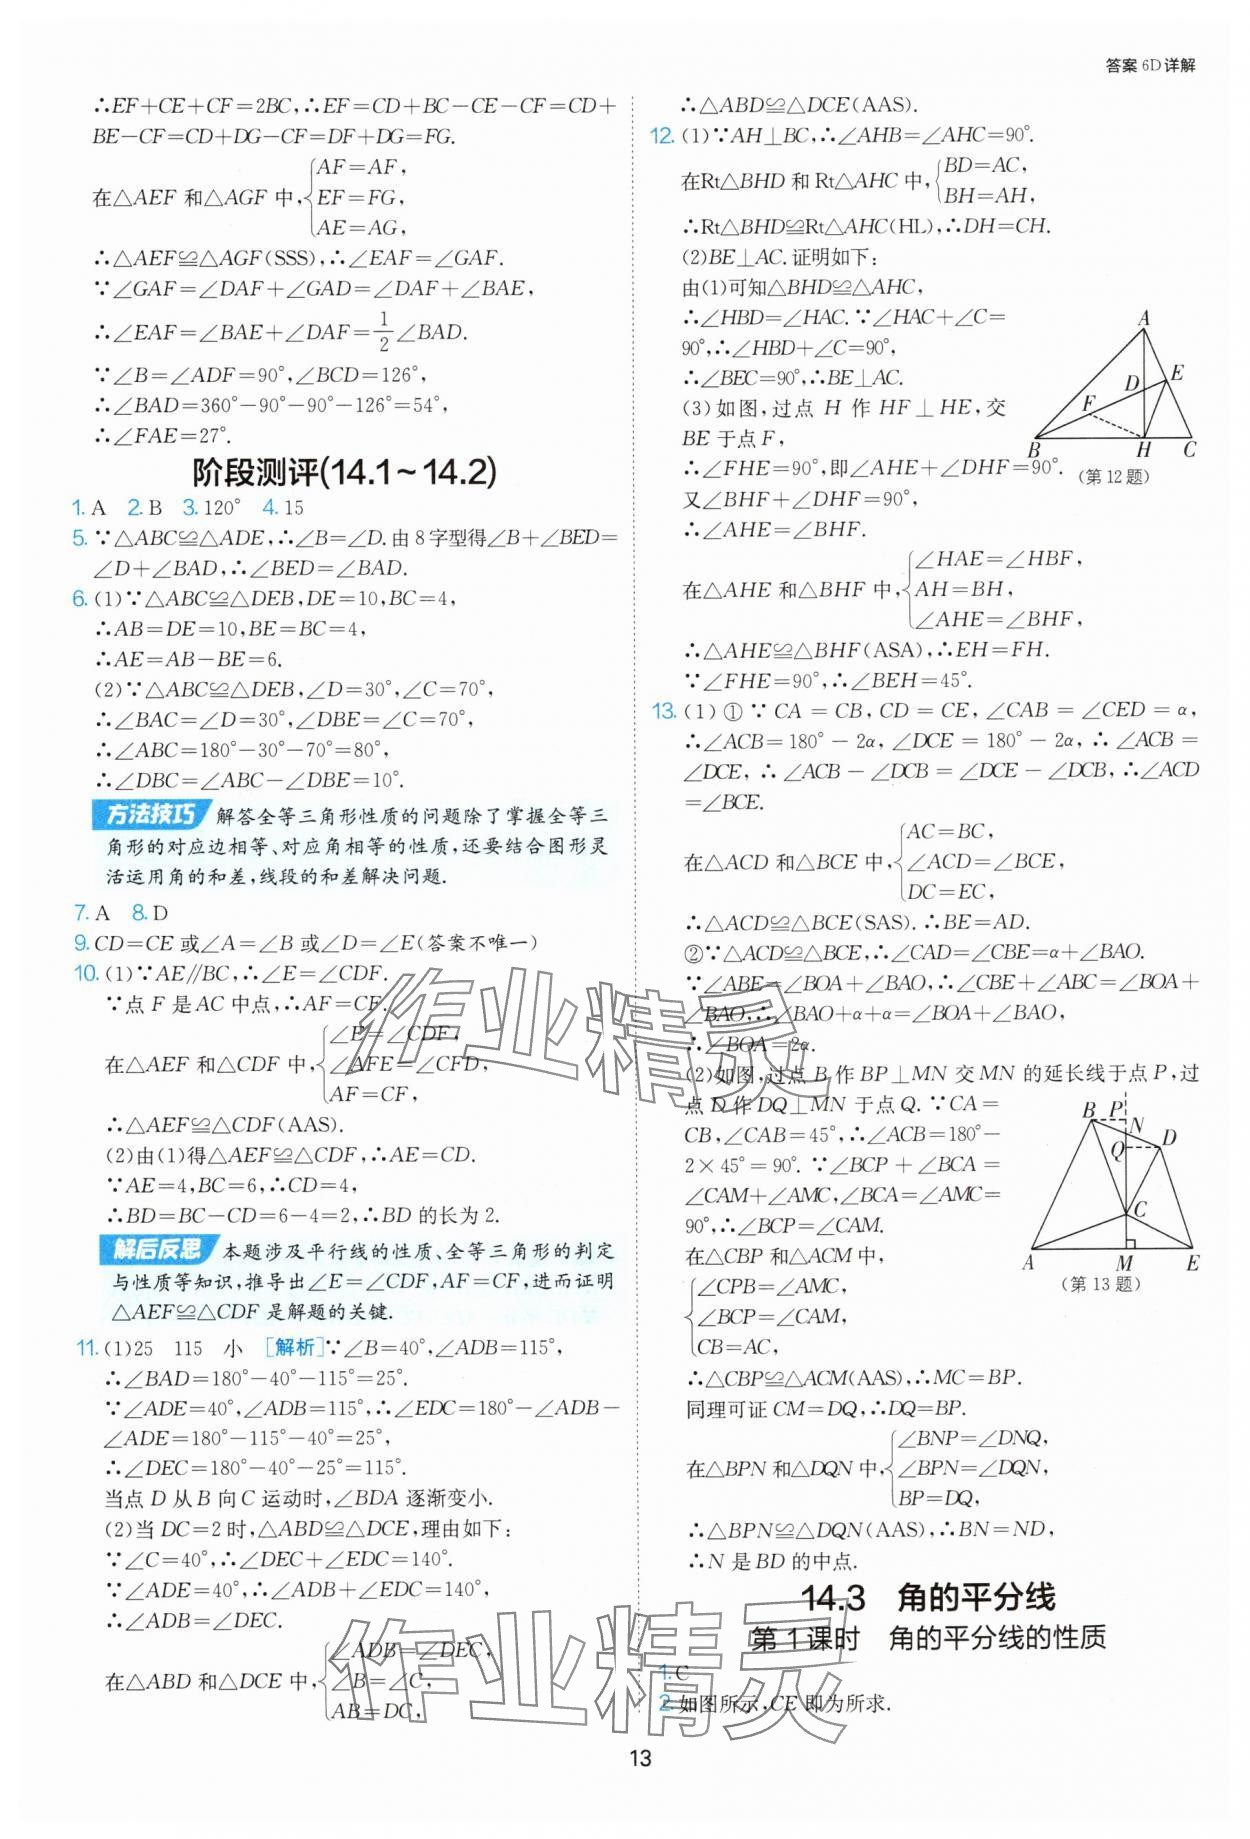 答案 6D详解
∴EF+CE+CF=2BC,∴EF=CD+BC-CE-CF=CD+
BE-CF=CD+DG-CF=DF+DG=FG.
在△AEF 和△AGF 中,{AF=AF,
EF=FG,
AE=AG,
∴△AEF≌△AGF(SSS),∴∠EAF=∠GAF.
∵∠GAF=∠DAF+∠GAD=∠DAF+∠BAE,
∴∠EAF=∠BAE+∠DAF=1/2∠BAD.
∵∠B=∠ADF=90°,∠BCD=126°,
∴∠BAD=360°-90°-90°-126°=54°,
∴∠FAE=27°.
阶段测评(14.1~14.2)
1. A 2. B 3. 120° 4. 15
5. ∵△ABC≌△ADE,∴∠B=∠D.由 8 字型得∠B+∠BED=
∠D+∠BAD,∴∠BED=∠BAD.
6. (1)∵△ABC≌△DEB,DE=10,BC=4,
∴AB=DE=10,BE=BC=4,
∴AE=AB-BE=6.
(2)∵△ABC≌△DEB,∠D=30°,∠C=70°,
∴∠BAC=∠D=30°,∠DBE=∠C=70°,
∴∠ABC=180°-30°-70°=80°,
∴∠DBC=∠ABC-∠DBE=10°.
方法技巧 解答全等三角形性质的问题除了掌握全等三
角形的对应边相等、对应角相等的性质,还要结合图形灵
活运用角的和差,线段的和差解决问题.
7. A 8. D
9. CD=CE 或∠A=∠B 或∠D=∠E(答案不唯一)
10. (1)∵AE∥BC,∴∠E=∠CDF.
∵点 F 是 AC 中点,∴AF=CF.
在△AEF 和△CDF 中,{∠E=∠CDF,
∠AFE=∠CFD,
AF=CF,
∴△AEF≌△CDF(AAS).
(2)由(1)得△AEF≌△CDF,∴AE=CD.
∵AE=4,BC=6,∴CD=4,
∴BD=BC-CD=6-4=2,∴BD 的长为 2.
解后反思 本题涉及平行线的性质、全等三角形的判定
与性质等知识,推导出∠E=∠CDF,AF=CF,进而证明
△AEF≌△CDF 是解题的关键.
11. (1)25 115 小 [解析]∵∠B=40°,∠ADB=115°,
∴∠BAD=180°-40°-115°=25°.
∵∠ADE=40°,∠ADB=115°,∴∠EDC=180°-∠ADB-
∠ADE=180°-115°-40°=25°,
∴∠DEC=180°-40°-25°=115°.
当点 D 从 B 向 C 运动时,∠BDA 逐渐变小.
(2)当 DC=2 时,△ABD≌△DCE,理由如下:
∵∠C=40°,∴∠DEC+∠EDC=140°.
∵∠ADE=40°,∴∠ADB+∠EDC=140°,
∴∠ADB=∠DEC.
在△ABD 和△DCE 中,{∠ADB=∠DEC,
∠B=∠C,
AB=DC,
∴△ABD≌△DCE(AAS).
12. (1)∵AH⊥BC,∴∠AHB=∠AHC=90°.
在Rt△BHD 和 Rt△AHC 中,{BD=AC,
BH=AH,
∴Rt△BHD≌Rt△AHC(HL),∴DH=CH.
(2)BE⊥AC.证明如下:
由(1)可知△BHD≌△AHC,
∴∠HBD=∠HAC.∵∠HAC+∠C=
90°,∴∠HBD+∠C=90°,
∴∠BEC=90°,∴BE⊥AC.
(3)如图,过点 H 作 HF⊥HE,交
BE 于点 F,
∴∠FHE=90°,即∠AHE+∠DHF=90°.
又∠BHF+∠DHF=90°,
∴∠AHE=∠BHF.
在△AHE 和△BHF 中,{∠HAE=∠HBF,
AH=BH,
∠AHE=∠BHF,
∴△AHE≌△BHF(ASA),∴EH=FH.
∵∠FHE=90°,∴∠BEH=45°.
A
D
E
F
B
H
C
(第12题)
13. (1)①∵CA=CB,CD=CE,∠CAB=∠CED=α,
∴∠ACB=180°-2α,∠DCE=180°-2α,∴∠ACB=
∠DCE,∴∠ACB-∠DCB=∠DCE-∠DCB,∴∠ACD
=∠BCE.
在△ACD 和△BCE 中,{AC=BC,
∠ACD=∠BCE,
DC=EC,
∴△ACD≌△BCE(SAS).∴BE=AD.
②∵△ACD≌△BCE,∴∠CAD=∠CBE=α+∠BAO.
∵∠ABE=∠BOA+∠BAO,∴∠CBE+∠ABC=∠BOA+
∠BAO,∴∠BAO+α+α=∠BOA+∠BAO,
∴∠BOA=2α.
(2)如图,过点 B 作 BP⊥MN 交 MN 的延长线于点 P,过
点 D 作 DQ⊥MN 于点 Q.∵CA=
CB,∠CAB=45°,∴∠ACB=180°-
2×45°=90°.∵∠BCP+∠BCA=
∠CAM+∠AMC,∠BCA=∠AMC=
90°,∴∠BCP=∠CAM.
在△CBP 和△ACM 中,
{∠CPB=∠AMC,
∠BCP=∠CAM,
CB=AC,
∴△CBP≌△ACM(AAS),∴MC=BP.
同理可证 CM=DQ,∴DQ=BP.
在△BPN 和△DQN 中,{∠BNP=∠DNQ,
∠BPN=∠DQN,
BP=DQ,
∴△BPN≌△DQN(AAS),∴BN=ND,
∴N 是 BD 的中点.
B
P
N
D
Q
C
A
M
E
(第13题)
14.3 角的平分线
第 1 课时 角的平分线的性质
1. C
2. 如图所示,CE 即为所求.
13
作业精灵
作业精灵